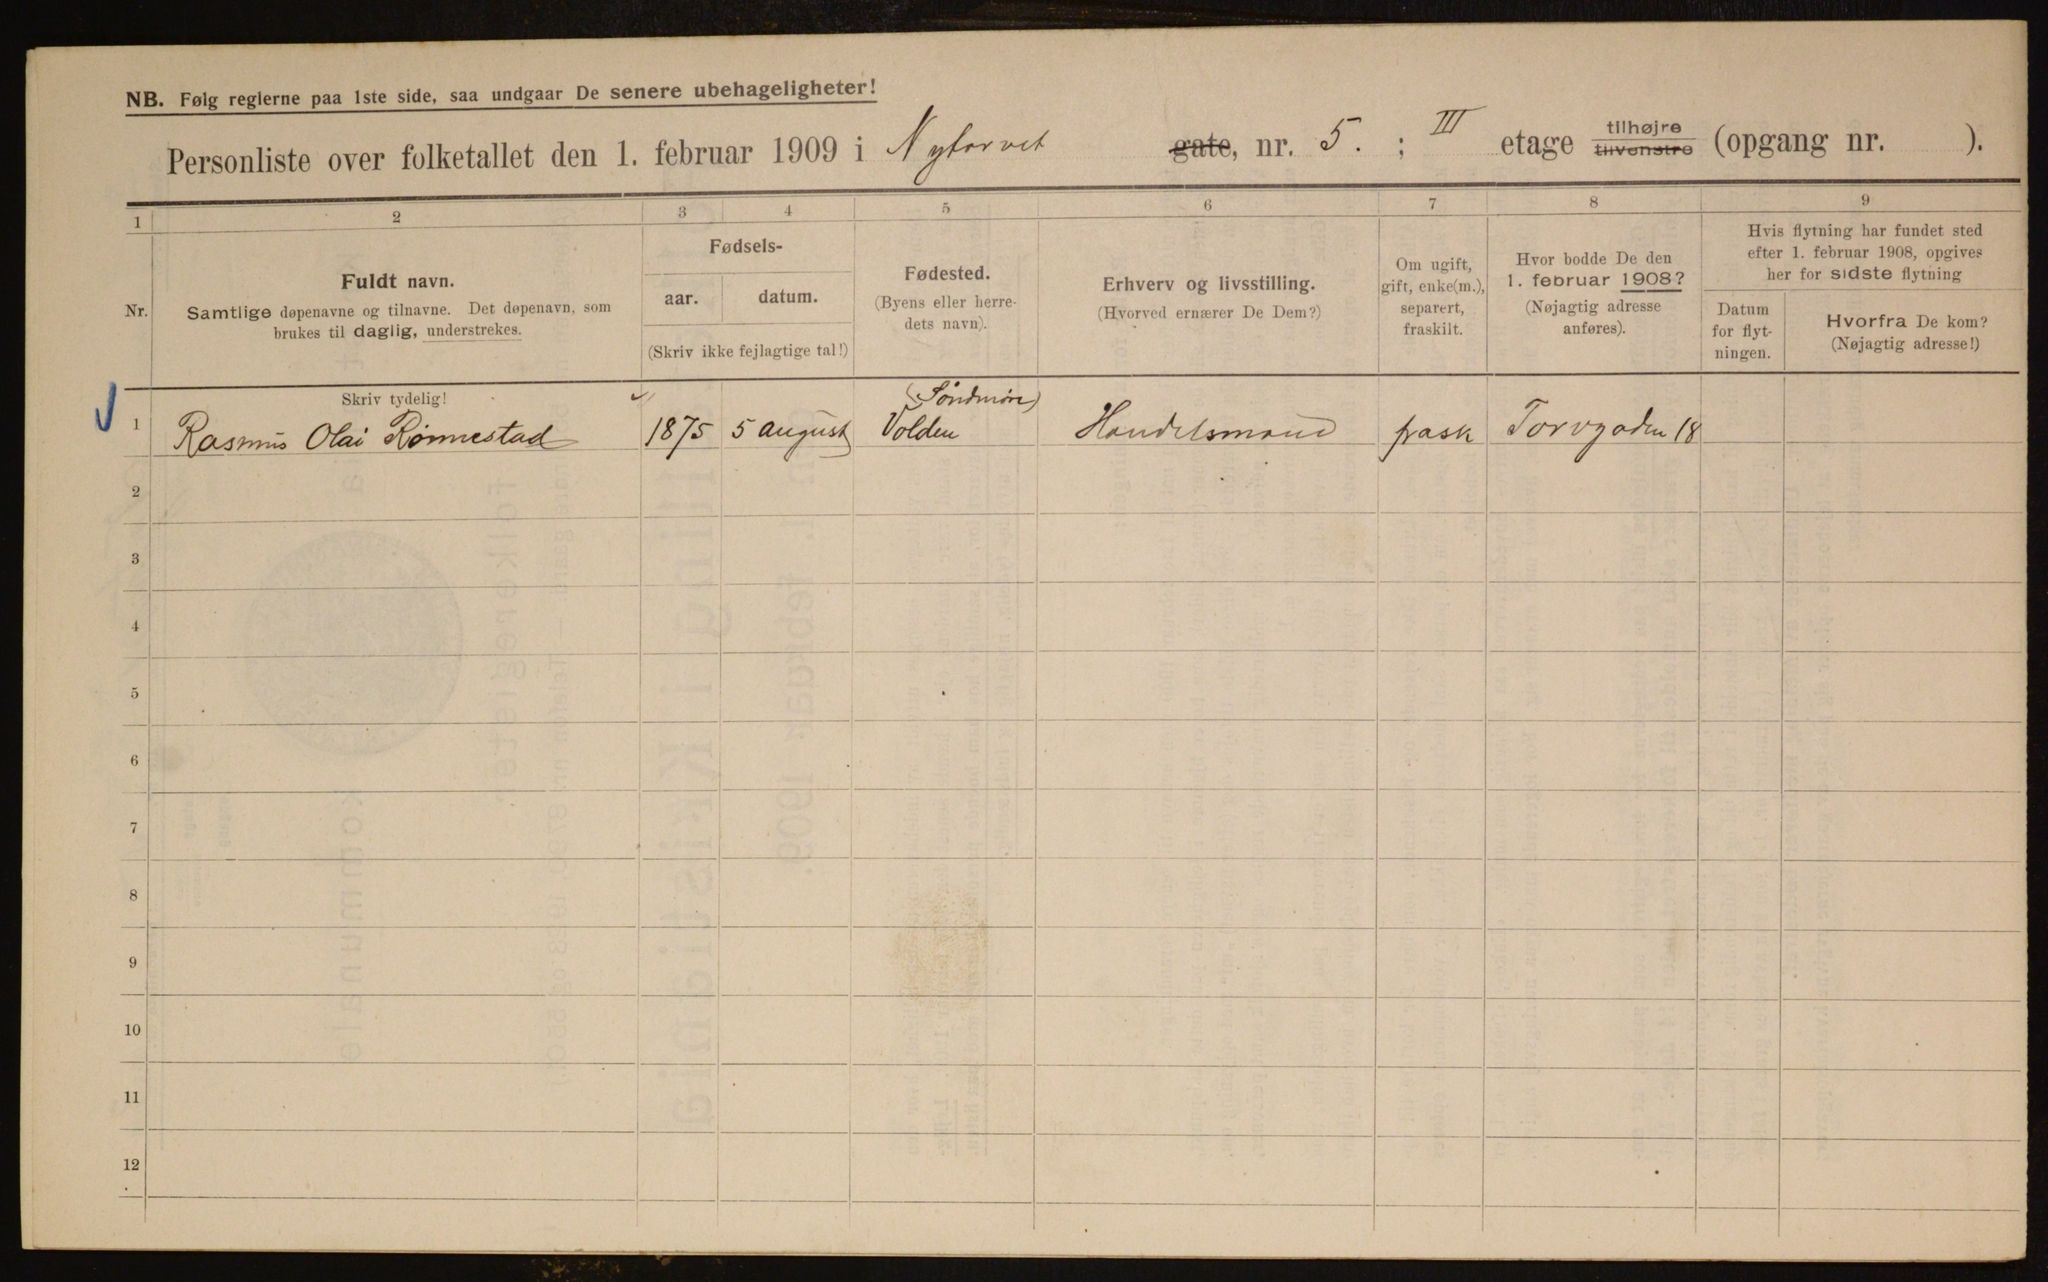 NB. Følg reglerne paa 1ste side, saa undgaar De senere ubehageligheter!
Personliste over folketallet den 1. februar 1909 i Nytorvet gate, nr. 5. ; III etage tilhøjre tilvenstre (opgang nr. ).
1 2 3 4 5 6 7 8 9
Nr.
Fuldt navn.
Samtlige døpenavne og tilnavne. Det døpenavn, som
brukes til daglig, understrekes.
Fødsels-
aar. datum.
(Skriv ikke fejlagtige tal!)
Fødested.
(Byens eller herre-
dets navn).
Erhverv og livsstilling.
(Hvorved ernærer De Dem?)
Om ugift,
gift, enke(m.),
separert,
fraskilt.
Hvor bodde De den
1. februar 1908?
(Nøjagtig adresse
anføres).
Hvis flytning har fundet sted
efter 1. februar 1908, opgives
her for sidste flytning
Datum
for flyt-
ningen.
Hvorfra De kom?
(Nøjagtig adresse!)
Skriv tydelig!
(Söndmöre)
1 Rasmus Olai Rönnestad 1875 5 august Volden Handelsmand frask Torvgaden 18
2
3
4
5
6
7
8
9
10
11
12